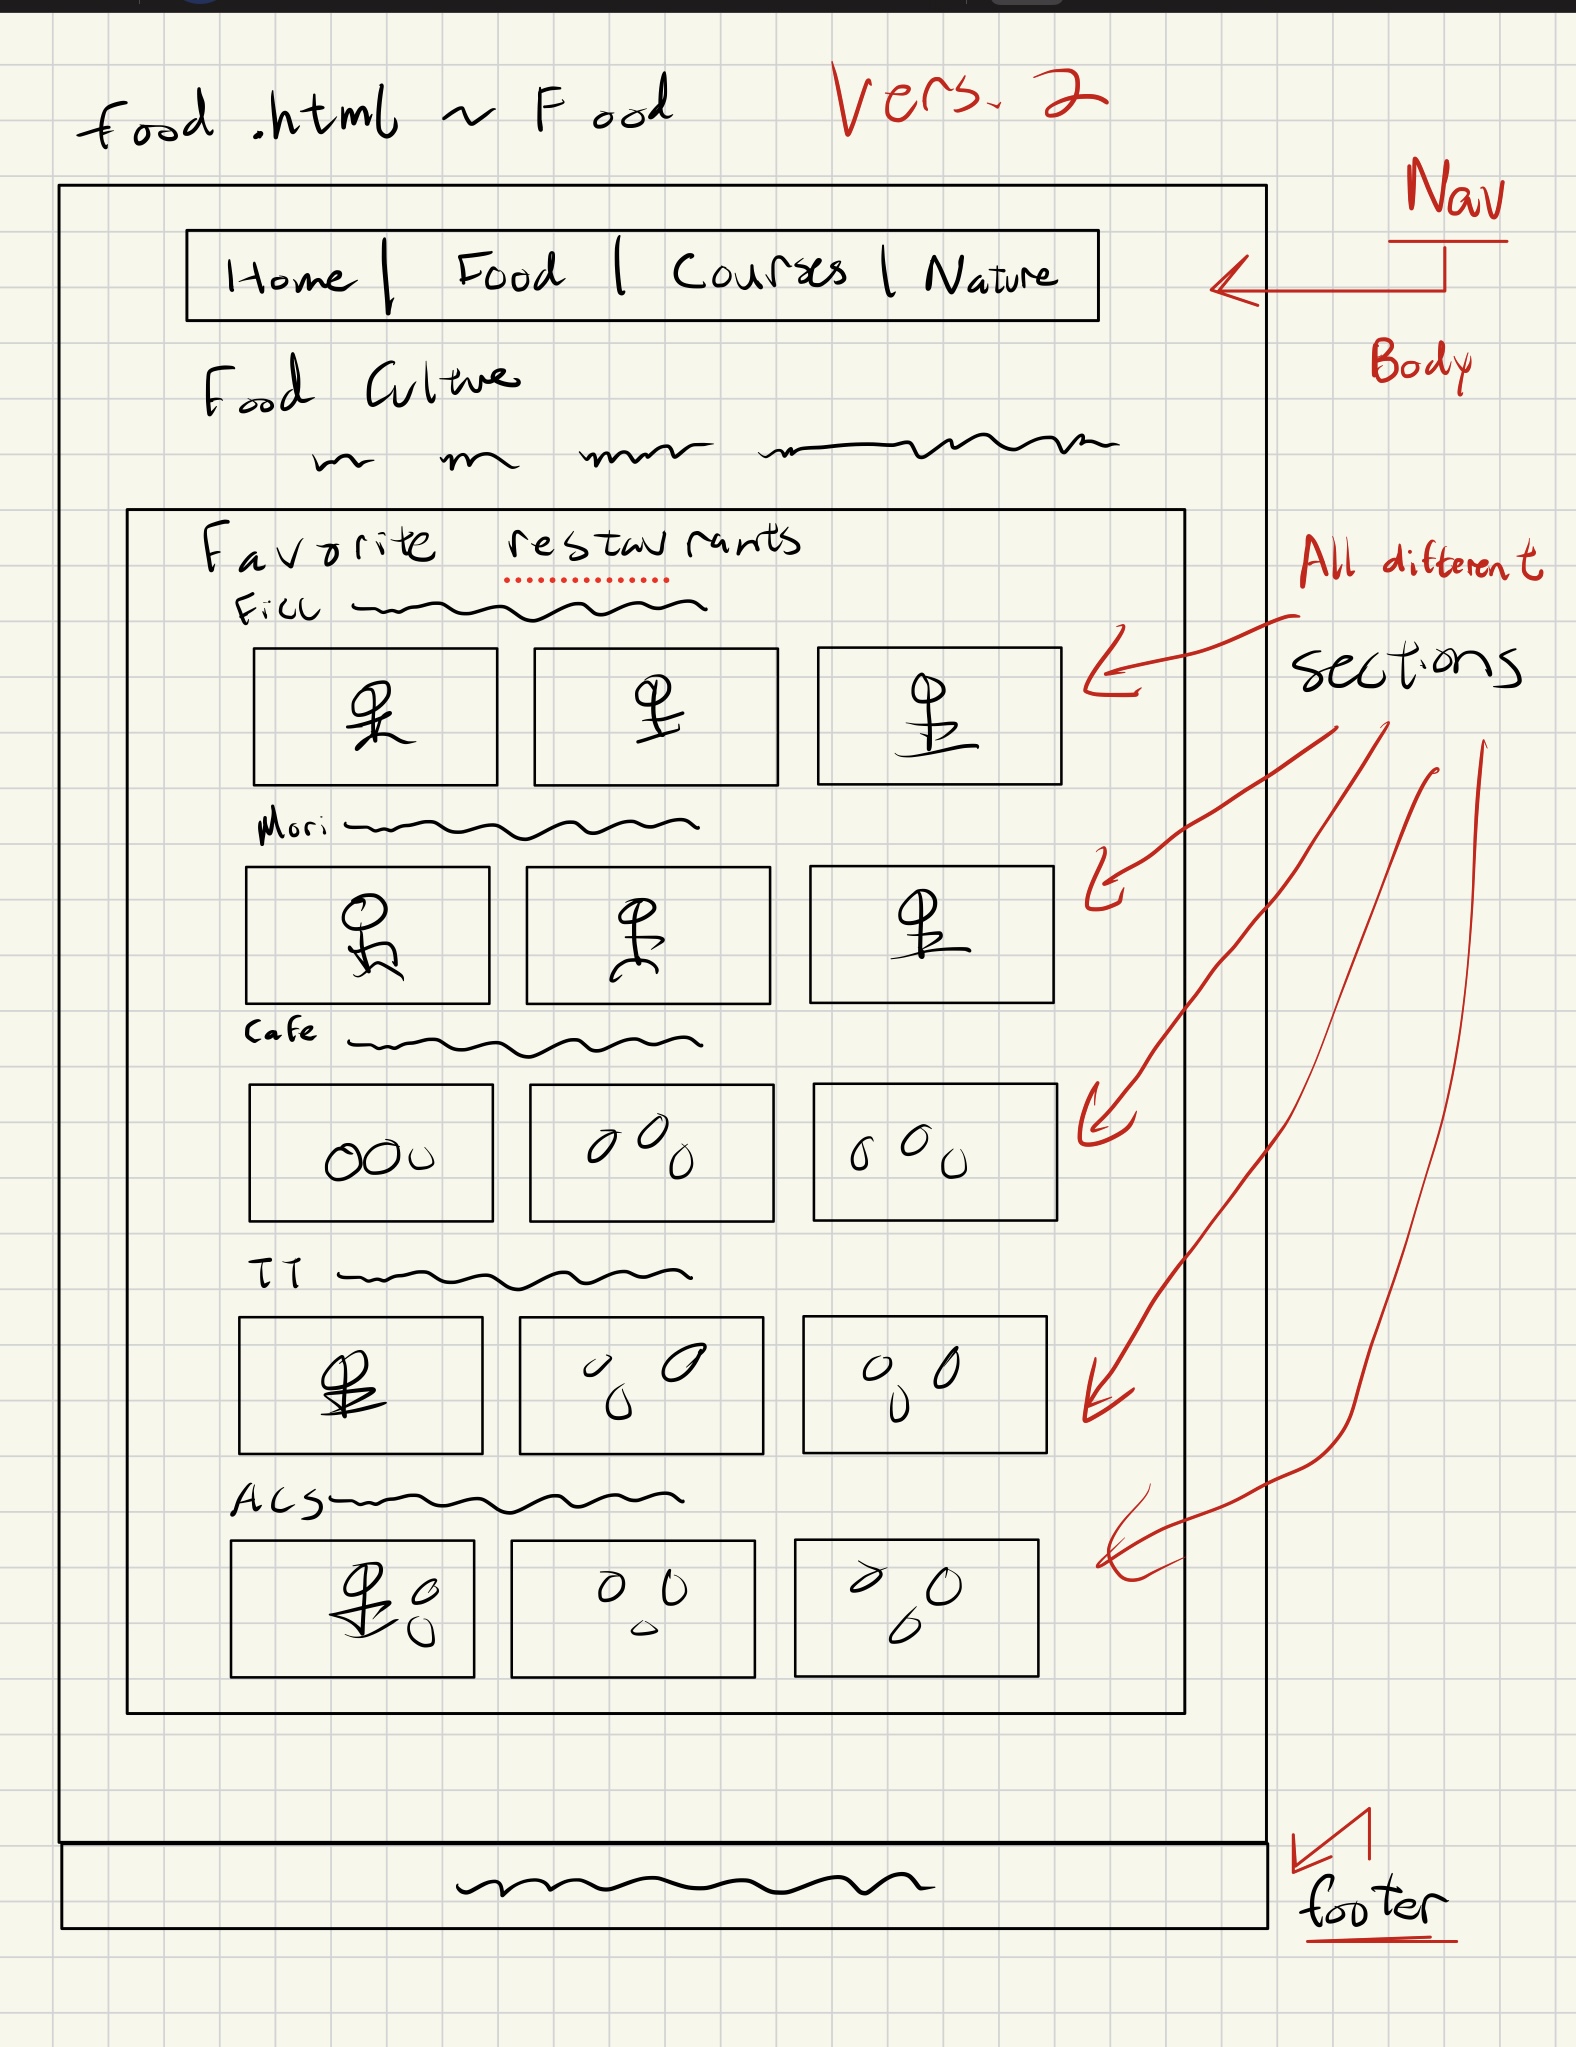 food.html ~ Food
Vers. 2
Nav
Home | Food | Courses | Nature
Body
Food Culture
Favorite restaurants
All different
sections
Mori
Cafe
TT
ACS
footer